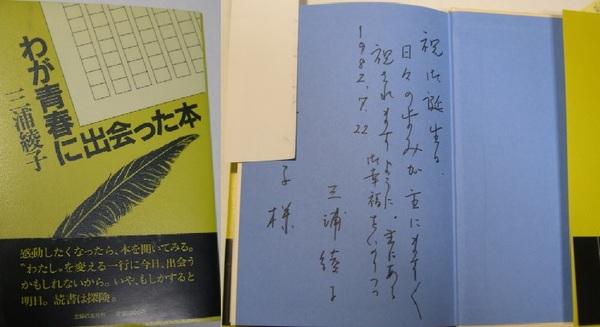 わが青春に出会った本
三浦綾子
感動したくなったら、本を開いてみる。
“わたし”を変える一行に今日、出会う
かもしれないから。いや、もしかすると
明日。読書は探険。
主婦の友社刊
祝御誕生日
日々の歩みが主にまもられ
祝されますように。主にある
御幸福をいのりつつ
1982.7.22
三浦綾子
子様